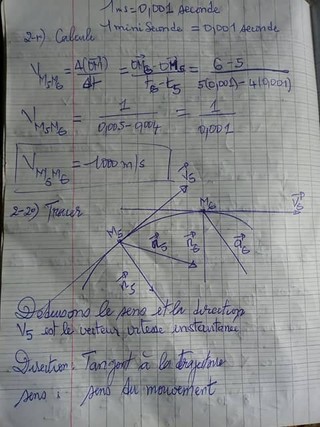 1 ms = 0,001 seconde
2-1) Calcule 1 miniSeconde = 0,001 seconde
V_{M5M6} = Δ(OM)/Δt = (OM6 - OM5)/(t6 - t5) = (6-5)/(5(0,001) - 4(0,001))
V_{M5M6} = 1/(0,005-0,004) = 1/0,001
V_{M5M6} = 1000 m/s
V5
2-2) Tracer M6 V6
M5
a5 n6 a6
n5
Deduisons le sens et la direction
V5 est le vecteur vitesse instantanée
Direction: Tangent à la trajectoire
sens: sens du mouvement